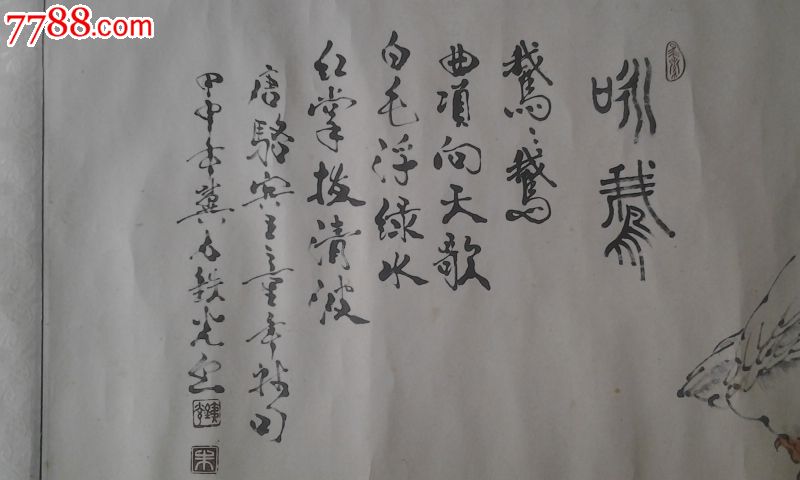 7788.com
咏鹅
鹅鹅鹅
曲项向天歌
白毛浮绿水
红掌拨清波
唐骆宾王童年诗句
甲申年冀